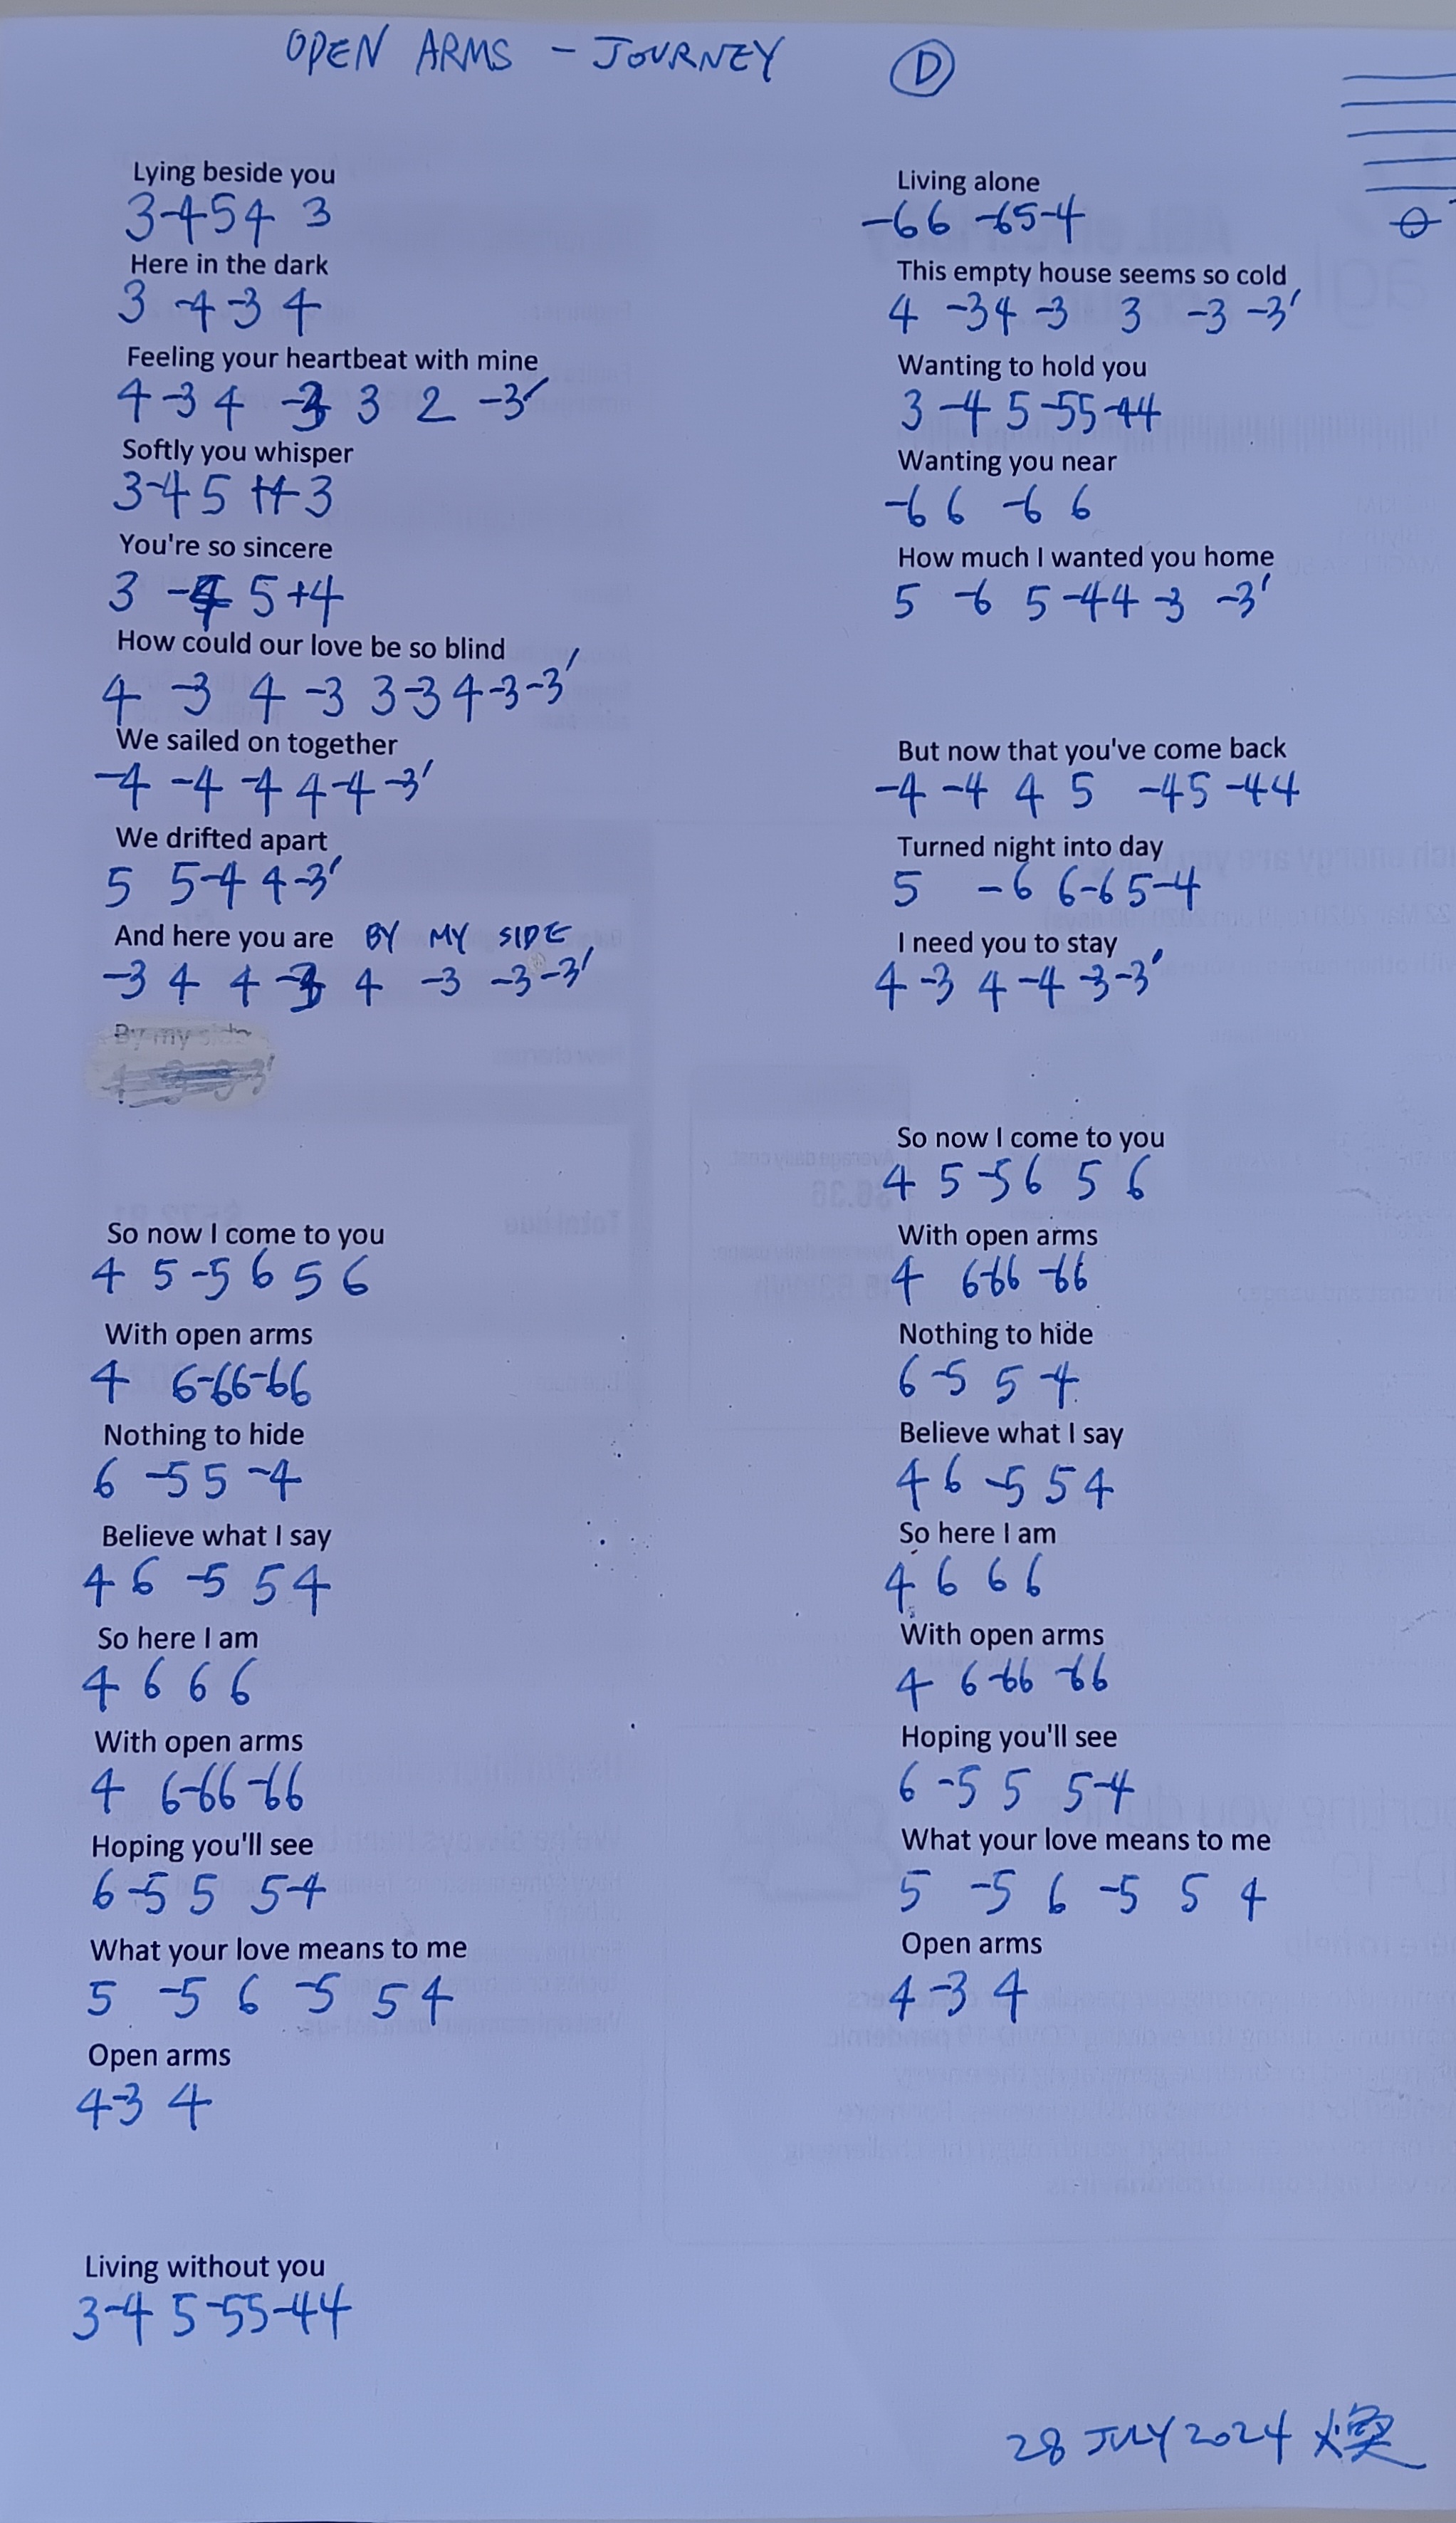 OPEN ARMS - JOURNEY D
Lying beside you
3-454 3
Here in the dark
3 -4 -3 4
Feeling your heartbeat with mine
4 -3 4 -3 3 2 -3'
Softly you whisper
3-45 +4 3
You're so sincere
3 -4 5+4
How could our love be so blind
4 -3 4 -3 3-3 4-3-3'
We sailed on together
-4 -4 -4 4-4 -3'
We drifted apart
5 5-4 4-3'
And here you are BY MY SIDE
-3 4 4 -3 4 -3 -3-3'
By my side
So now I come to you
4 5 -5 6 5 6
With open arms
4 6-66-66
Nothing to hide
6 -55 -4
Believe what I say
4 6 -5 5 4
So here I am
4 6 6 6
With open arms
4 6-66-66
Hoping you'll see
6-55 5-4
What your love means to me
5 -5 6 -5 5 4
Open arms
4-3 4
Living without you
3-4 5-55-44
Living alone
-66 -65-4
This empty house seems so cold
4 -34 -3 3 -3 -3'
Wanting to hold you
3 -4 5-55-44
Wanting you near
-6 6 -6 6
How much I wanted you home
5 -6 5-44 -3 -3'
But now that you've come back
-4 -4 4 5 -45 -44
Turned night into day
5 -6 6-65-4
I need you to stay
4 -3 4-4 -3-3'
So now I come to you
4 5 -56 5 6
With open arms
4 6-66 -66
Nothing to hide
6-5 5 -4
Believe what I say
4 6 -5 5 4
So here I am
4 6 6 6
With open arms
4 6-66 -66
Hoping you'll see
6 -5 5 5-4
What your love means to me
5 -5 6 -5 5 4
Open arms
4-3 4
28 JULY 2024 煥